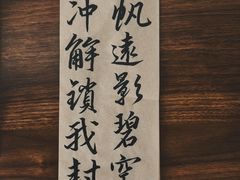 帆遠影碧空
冲解鎖我封